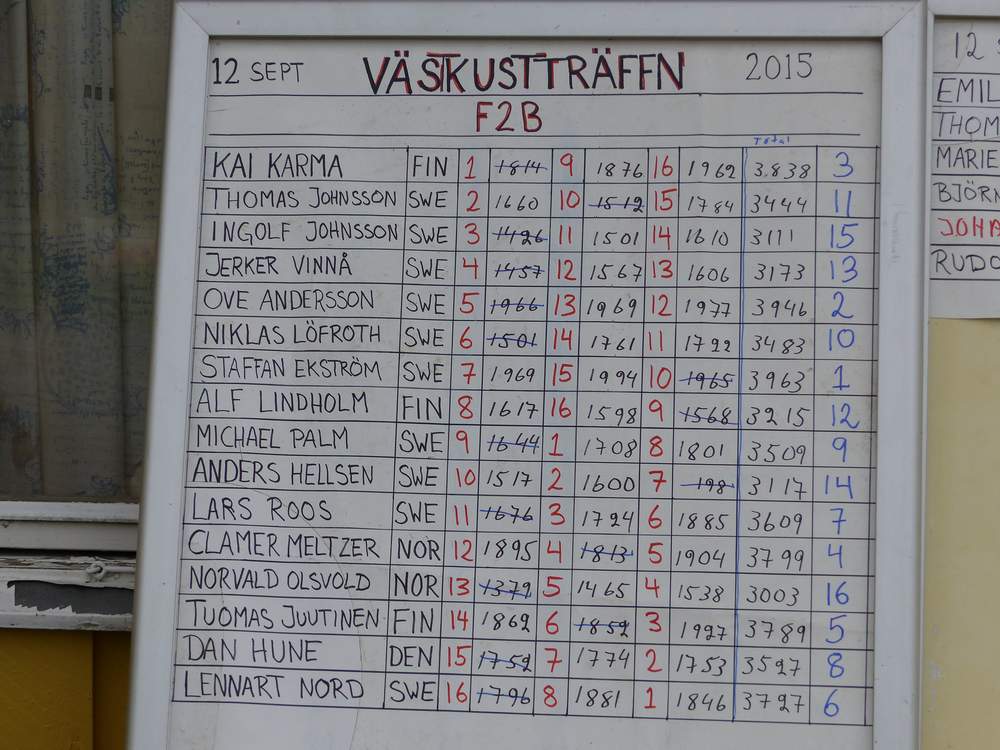 12 SEPT VÄSTKUSTTRÄFFN 2015
F2B
Total
KAI KARMA FIN 1 1814 9 1876 16 1962 3838 3
THOMAS JOHNSSON SWE 2 1660 10 1512 15 1784 3444 11
INGOLF JOHNSSON SWE 3 1426 11 1501 14 1610 3111 15
JERKER VINNÅ SWE 4 1457 12 1567 13 1606 3173 13
OVE ANDERSSON SWE 5 1966 13 1969 12 1977 3946 2
NIKLAS LÖFROTH SWE 6 1501 14 1761 11 1722 3483 10
STAFFAN EKSTRÖM SWE 7 1969 15 1994 10 1965 3963 1
ALF LINDHOLM FIN 8 1617 16 1598 9 1568 3215 12
MICHAEL PALM SWE 9 1644 1 1708 8 1801 3509 9
ANDERS HELLSEN SWE 10 1517 2 1600 7 198 3117 14
LARS ROOS SWE 11 1676 3 1724 6 1885 3609 7
CLAMER MELTZER NOR 12 1895 4 1813 5 1904 3799 4
NORVALD OLSVOLD NOR 13 1379 5 1465 4 1538 3003 16
TUOMAS JUUTINEN FIN 14 1862 6 1852 3 1927 3789 5
DAN HUNE DEN 15 1752 7 1774 2 1753 3527 8
LENNART NORD SWE 16 1796 8 1881 1 1846 3727 6
12
EMIL
THOM
MARIE
BJÖRN
JOHA
RUDO